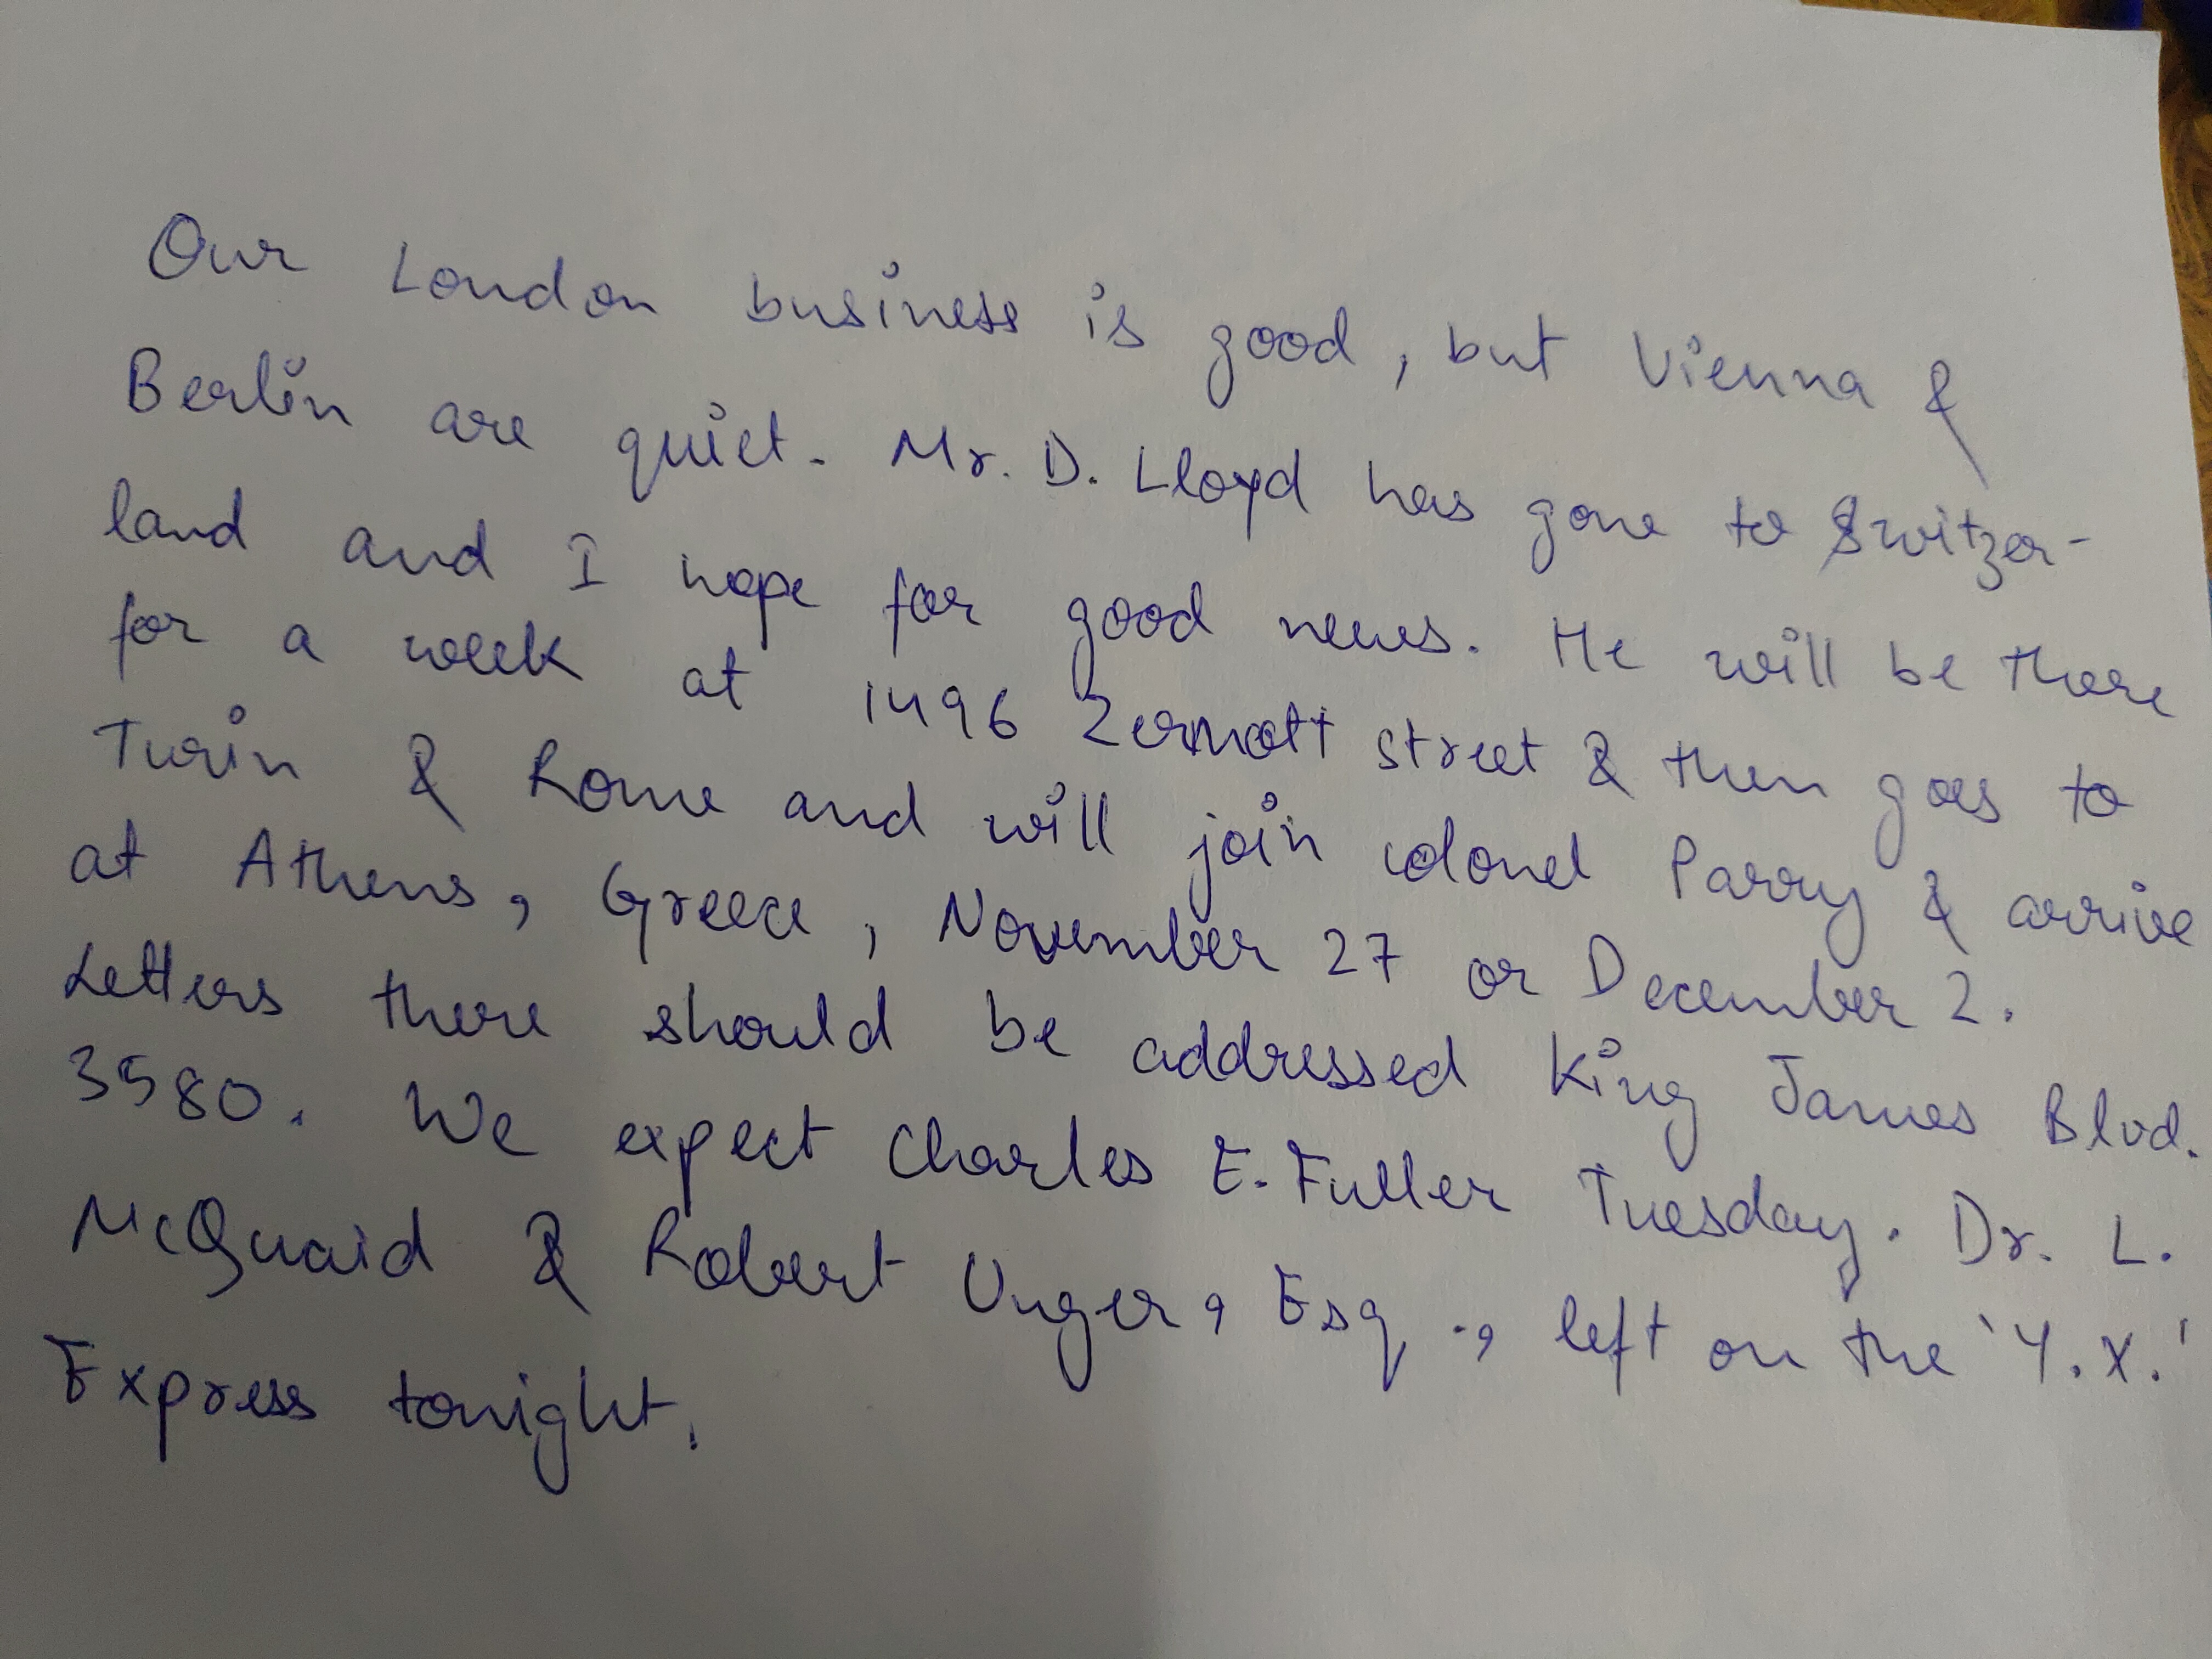 Our London business is good, but Vienna &
Berlin are quiet. Mr. D. Lloyd has gone to Switzer-
land and I hope for good news. He will be there
for a week at 1496 Zermott street & then goes to
Turin & Rome and will join colonel Parry & arrive
at Athens, Greece, November 27 or December 2.
Letters there should be addressed King James Blvd.
3580. We expect Charles E. Fuller Tuesday. Dr. L.
McQuaid & Robert Unger, Esq., left on the 'Y.X.'
Express tonight.